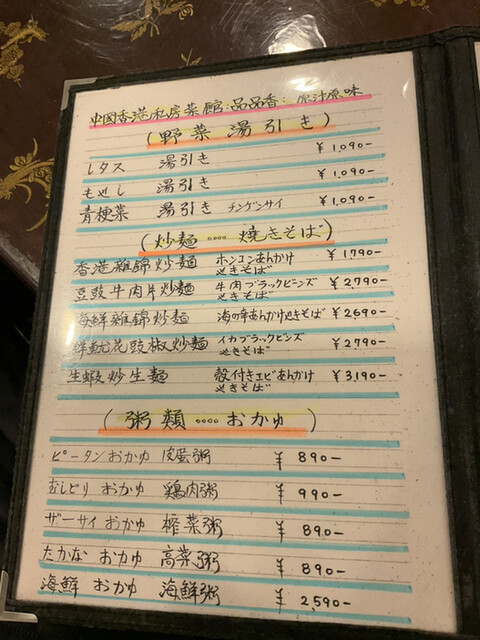 中國香港私房菜館:品品香:原汁原味
(野菜 湯引き)
レタス 湯引き ¥1,090-
もやし 湯引き ¥1,090-
青梗菜 湯引き チンゲンサイ ¥1,090-
(炒麺····焼きそば)
香港雜錦炒麺 ホンコンあんかけ やきそば ¥1790-
豆豉牛肉片炒麺 牛肉ブラックビーンズ やきそば ¥2,790-
海鮮雜錦炒麺 海の幸あんかけやきそば ¥2690-
鮮魷花豉椒炒麺 イカブラックビンズ やきそば ¥2,790-
生蝦炒生麺 殻付きエビあんかけ やきそば ¥3,190-
(粥類····おかゆ)
ピータンおかゆ 皮蛋粥 ¥890-
むしどりおかゆ 鶏肉粥 ¥990-
ザーサイおかゆ 榨菜粥 ¥890-
たかなおかゆ 高菜粥 ¥890-
海鮮おかゆ 海鮮粥 ¥2,590-